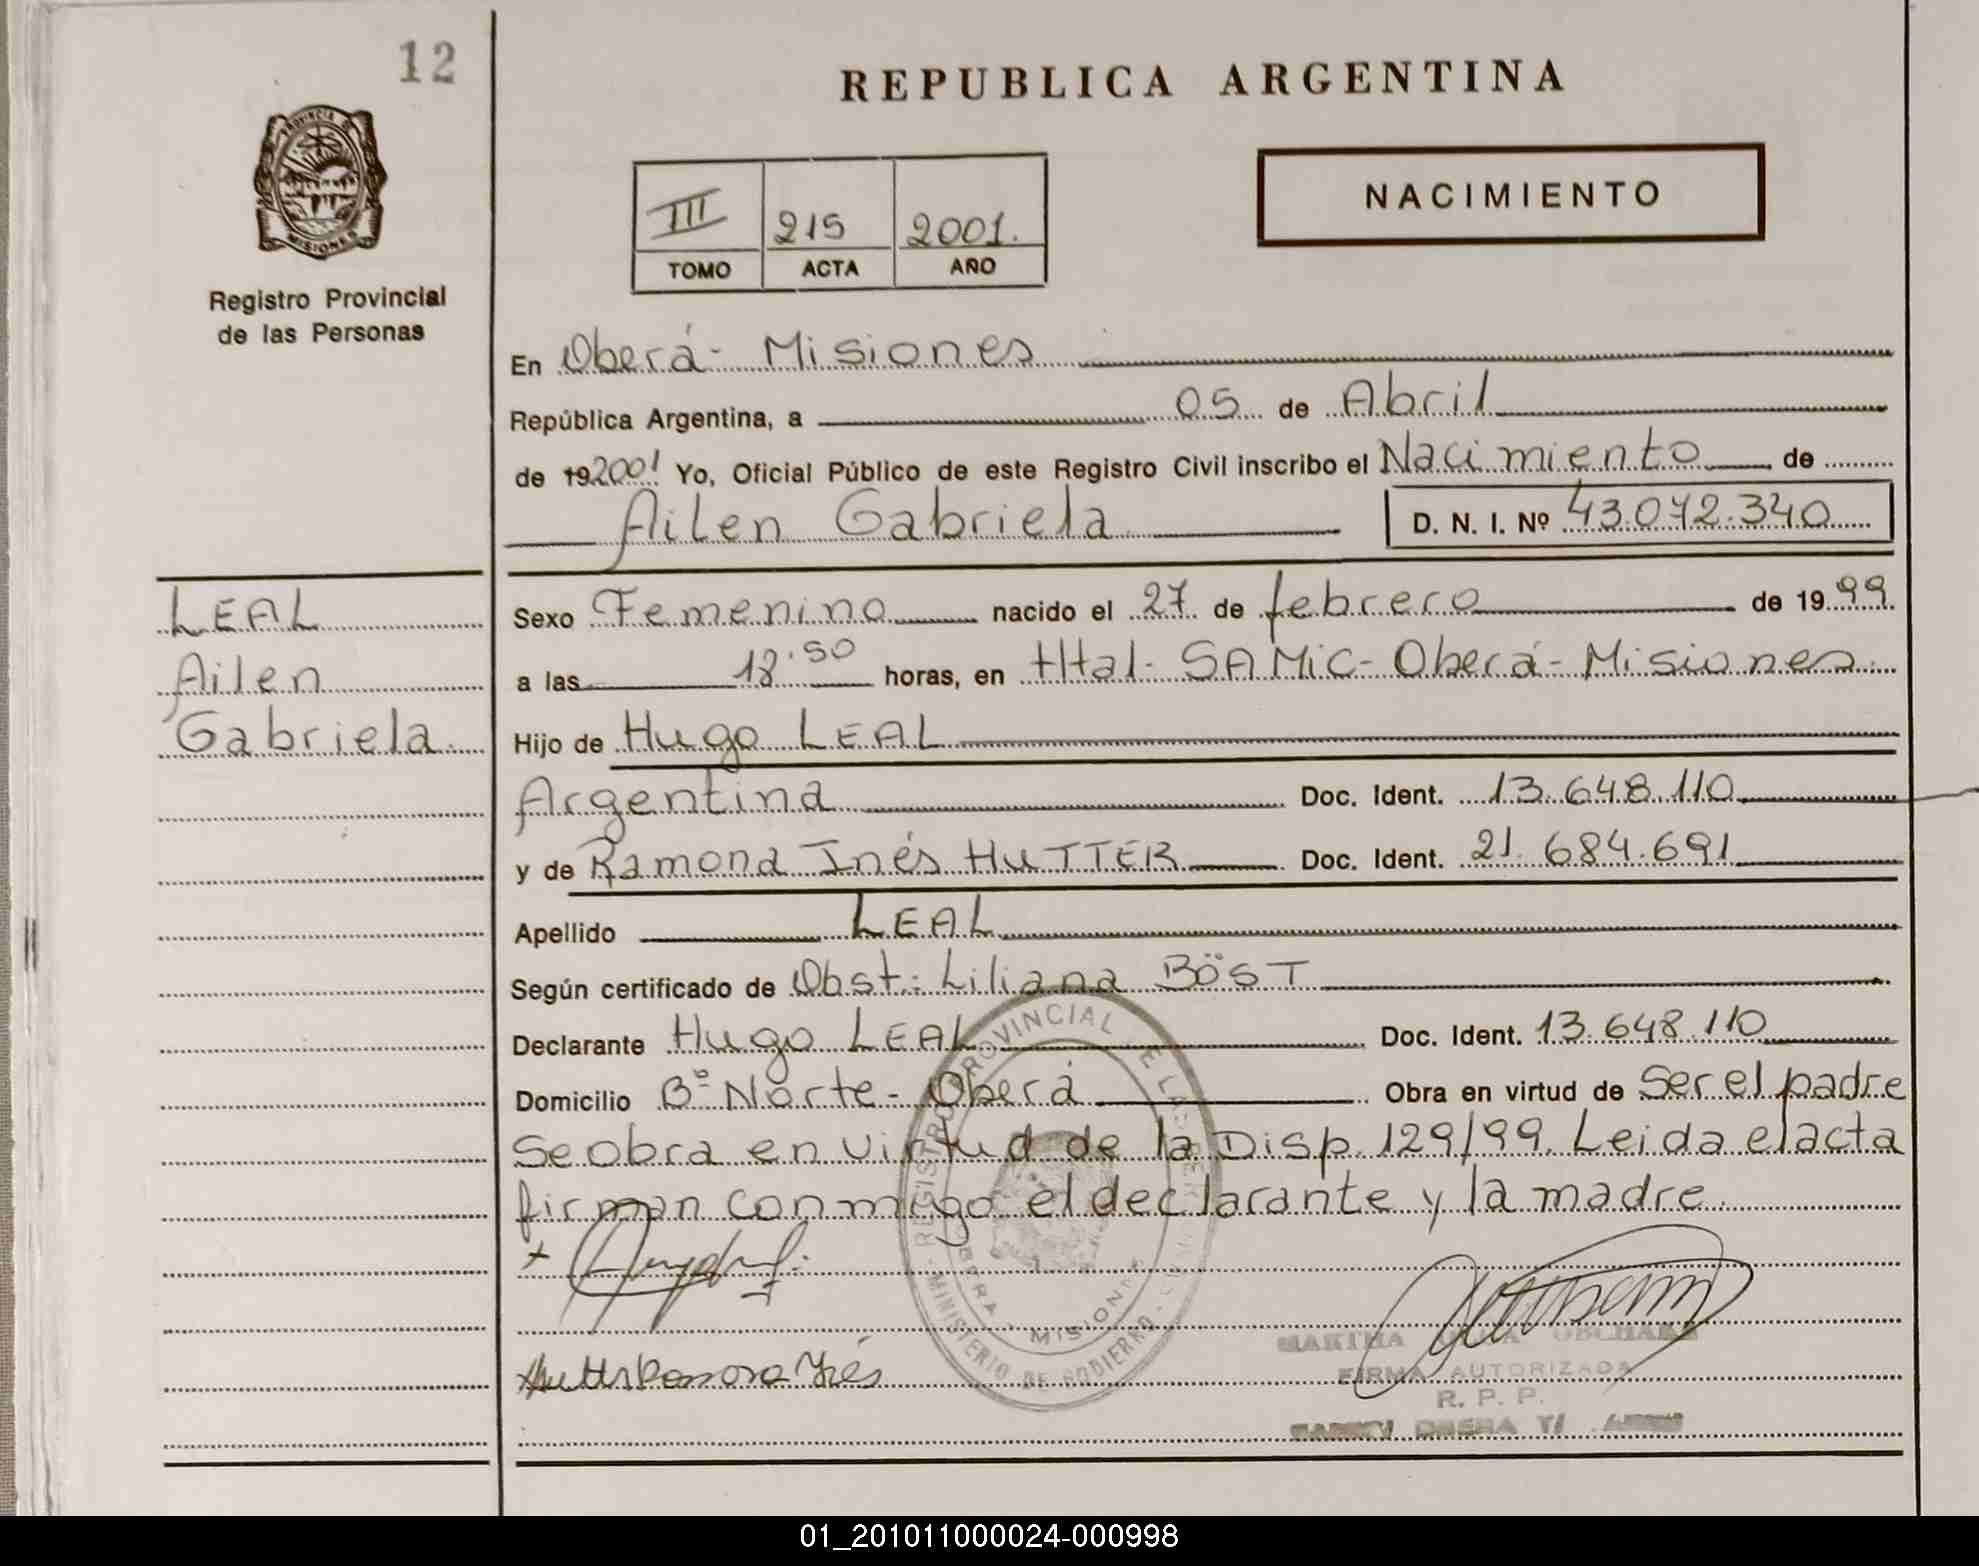 12
REPUBLICA ARGENTINA
PROVINCIA DE
MISIONES
NACIMIENTO
III 215 2001.
TOMO ACTA AÑO
Registro Provincial
de las Personas
En Oberá - Misiones
República Argentina, a 05 de Abril
de 192001 Yo, Oficial Público de este Registro Civil inscribo el Nacimiento de
Ailen Gabriela D. N. I. Nº 43.072.340
LEAL
Ailen
Gabriela
Sexo Femenino nacido el 27 de febrero de 1999
a las 18:50 horas, en Htal - SAMIC - Oberá - Misiones
Hijo de Hugo LEAL
Argentina Doc. Ident. 13.648.110
y de Ramona Inés HUTTER Doc. Ident. 21.684.691
Apellido LEAL
Según certificado de Obst: Liliana BÖST
Declarante Hugo LEAL Doc. Ident. 13.648.110
Domicilio Bº Norte - Oberá Obra en virtud de Ser el padre
Se obra en virtud de la Disp. 129/99. Leida el acta
firman conmigo el declarante y la madre
REGISTRO PROVINCIAL DE LAS
MINISTERIO DE GOBIERNO
OBERA MISIONES
Ramona Inés
MARTHA
FIRMA AUTORIZADA
R. P. P.
OBERA
01_201011000024-000998